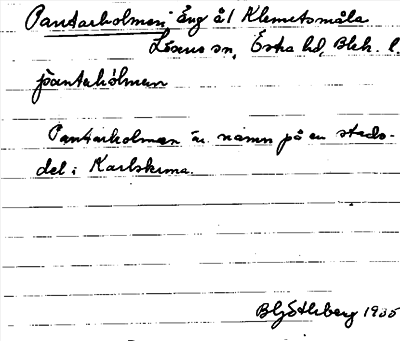 Pantarholmen Äng å 1 Klemetsmåla
Lösens sn, Östra hd, Blek. l.
pantahólmen
Pantarholmen är namn på en stads-
del i Karlskrona.
1935